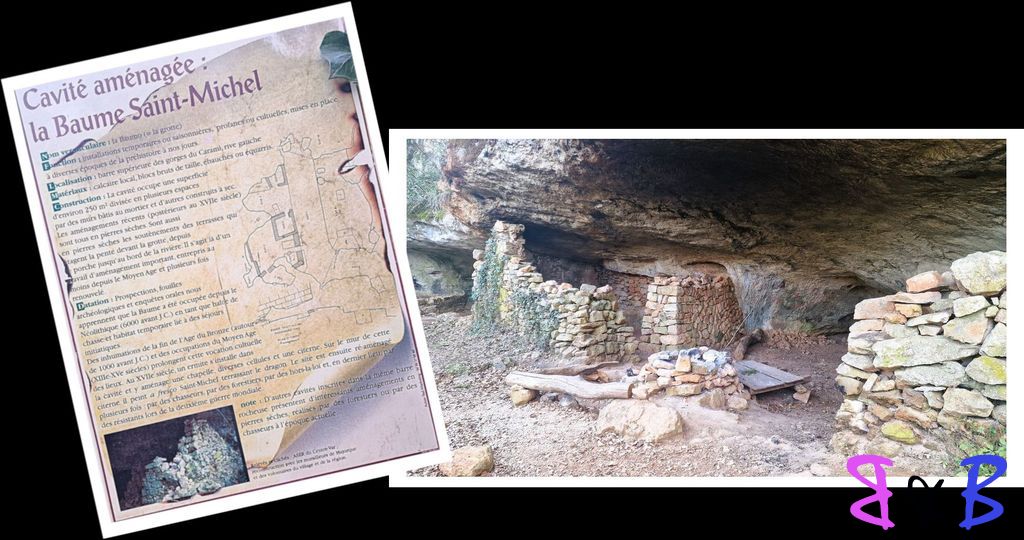 Cavité aménagée :
la Baume Saint-Michel
Nom vernaculaire : la Baumo (= la grotte)
Fonction : installations temporaires ou saisonnières, profanes ou cultuelles, mises en place
à diverses époques de la préhistoire à nos jours.
Localisation : barre supérieure des gorges du Carami, rive gauche
Matériaux : calcaire local, blocs bruts de taille, ébauchés ou équarris.
Construction : La cavité occupe une superficie
d'environ 250 m² divisée en plusieurs espaces
par des murs bâtis au mortier et d'autres construits à sec.
Les aménagements récents (postérieurs au XVIIe siècle)
sont tous en pierres sèches. Sont aussi
en pierres sèches les soutènements des terrasses qui
étagent la pente devant la grotte, depuis
le porche jusqu'au bord de la rivière. Il s'agit là d'un
travail d'aménagement important, entrepris au
moins depuis le Moyen Age et plusieurs fois
renouvelé.
Datation : Prospections, fouilles
archéologiques et enquêtes orales nous
apprennent que la Baume a été occupée depuis le
Néolithique (6000 avant J.C.) en tant que halte de
chasse et habitat temporaire lié à des séjours
initiatiques.
Des inhumations de la fin de l'Age du Bronze (autour
de 1000 avant J.C.) et des occupations du Moyen Age
(XIIe-XVe siècles) prolongent cette vocation cultuelle
des lieux. Au XVIIe siècle, un ermite s'installe dans
la cavité et y aménage une chapelle, diverses cellules et une citerne. Sur le mur de cette
citerne il peint a fresco saint-Michel terrassant le dragon. Le site est ensuite ré-aménagé
plusieurs fois : par des chasseurs, par des forestiers, par des hors-la-loi et, en dernier lieu, par
des résistants lors de la deuxième guerre mondiale.
note : D'autres cavités inscrites dans la même barre
rocheuse présentent d'intéressants aménagements en
pierres sèches, réalisés par des forestiers ou par des
chasseurs à l'époque actuelle.
et des volontaires du village et de la région.
B & B